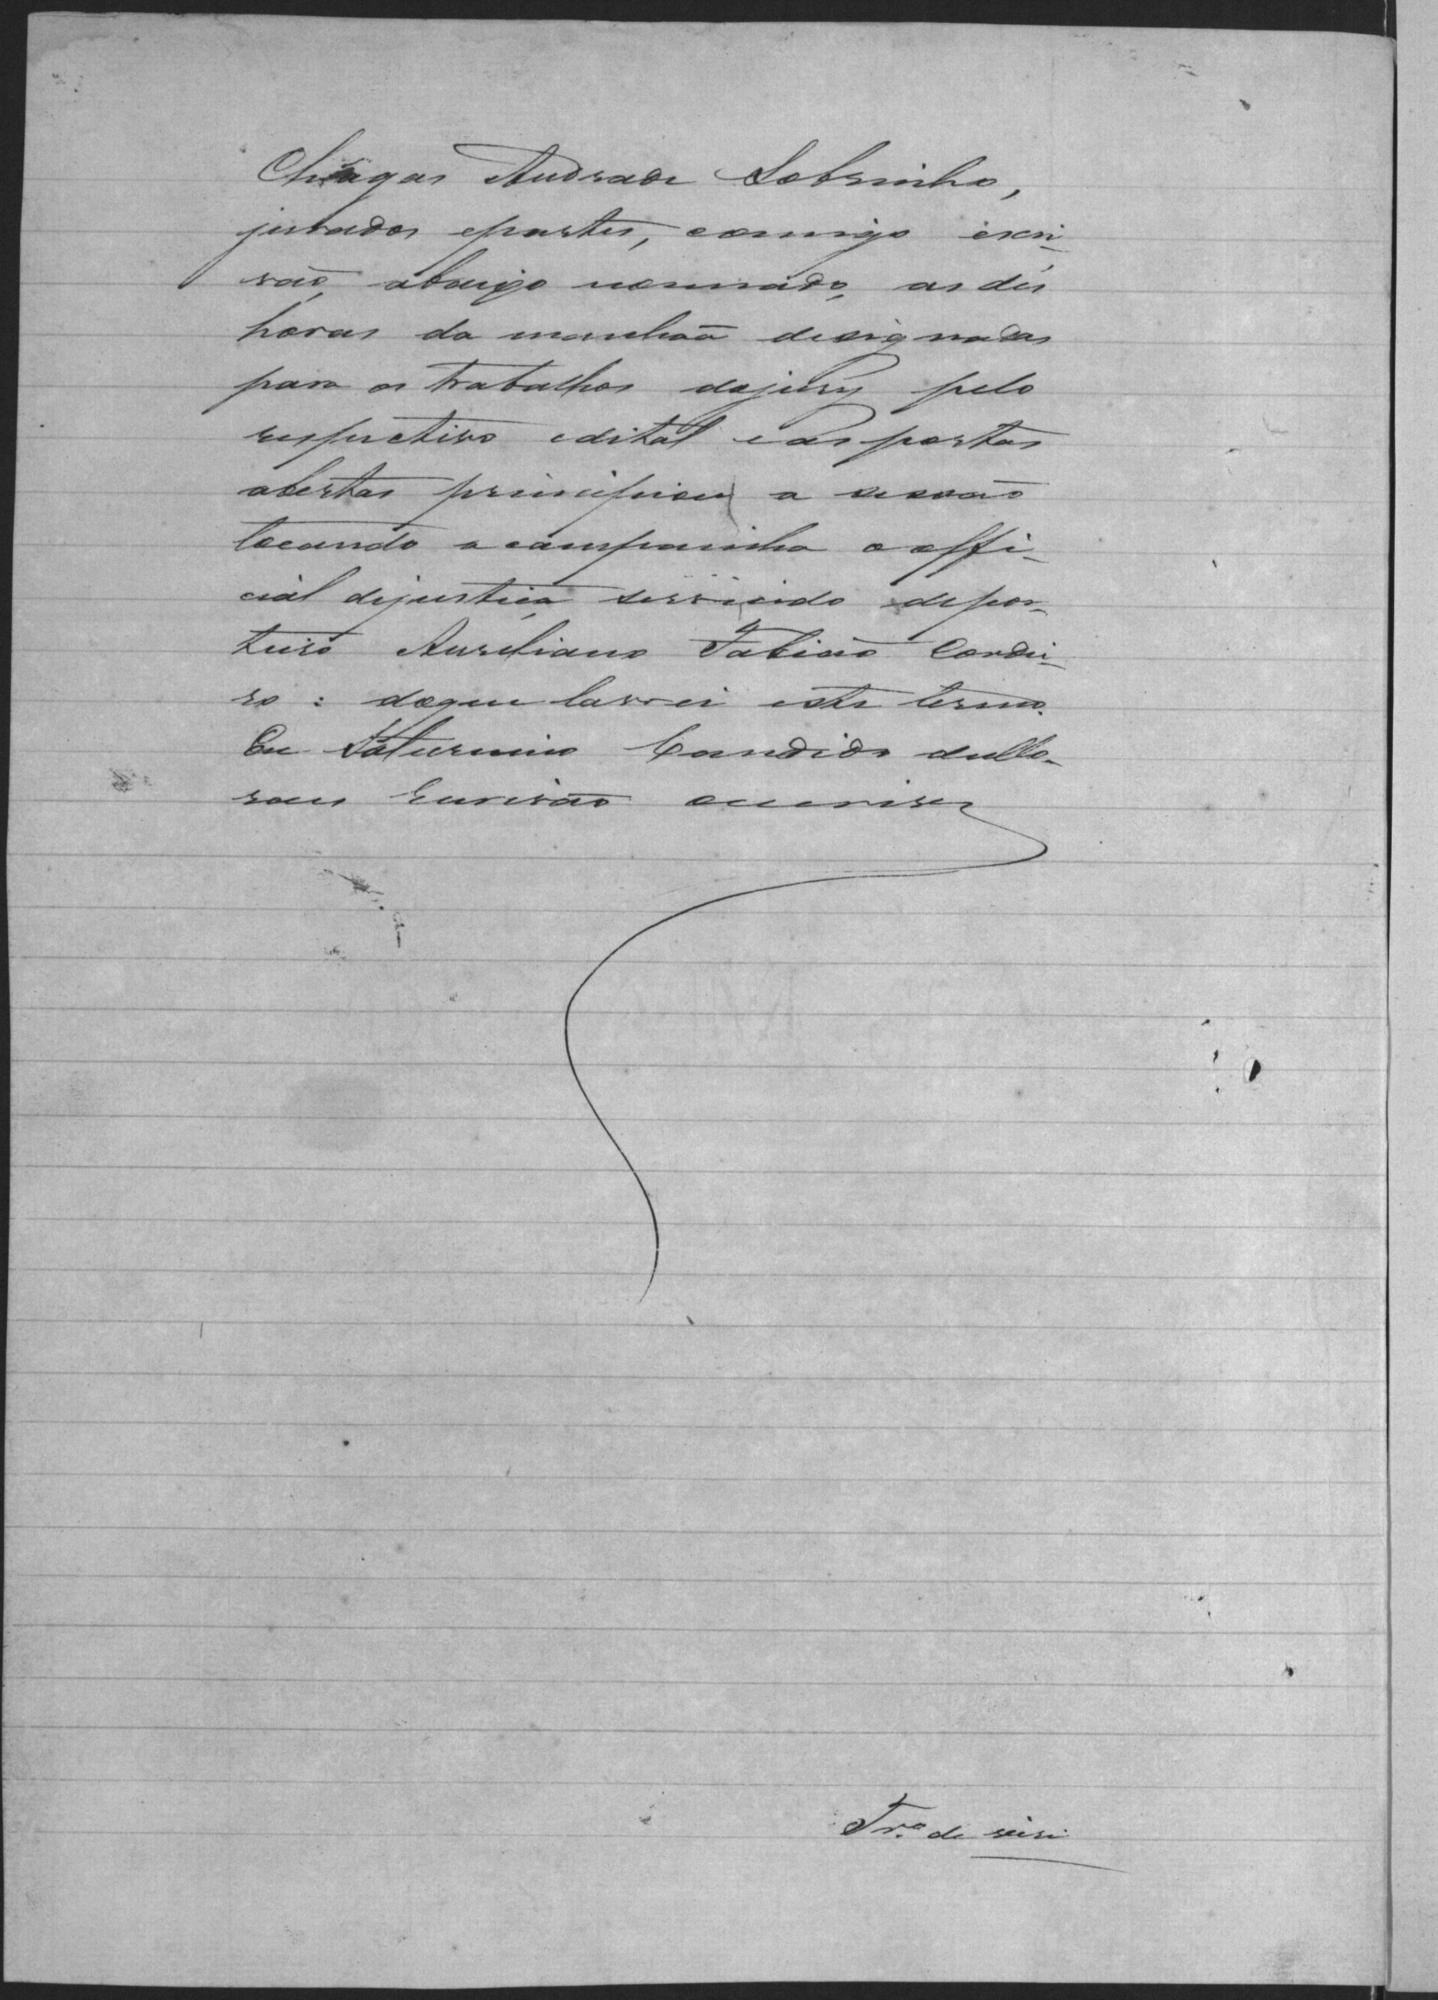 Chagas Andrade Sobrinho,
jurados epartes, comigo escri-
vão, abaixo nomiado, as dés
horas da manhaã designadas
para os trabalhos dojury pelo
respectivo edital e as portas
abertas principiou a sessão
tocando a campainha o offi-
cial dejustiça servindo depor-
teiro Aureliano Fabião Cordei-
ro: doque lavrei este termo.
Eu Saturnino Candido deMo-
raes Escrivão o escrivi
Tr.º de